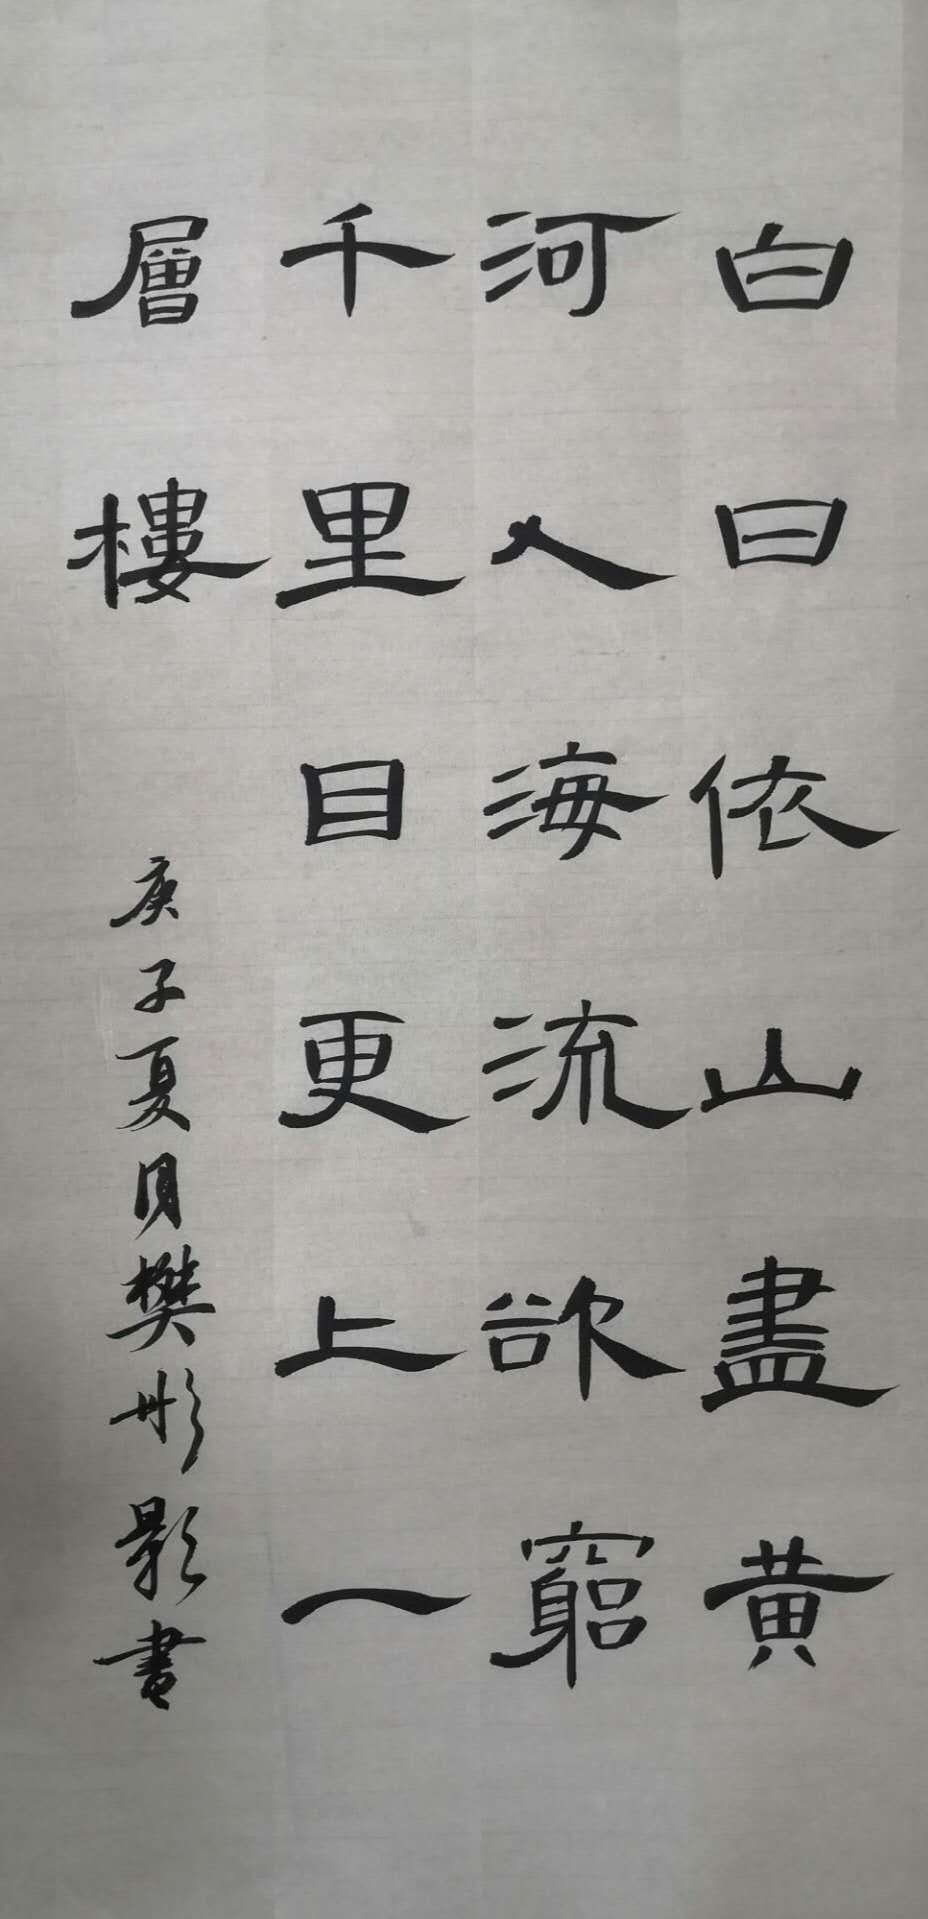 白日依山盡黄
河入海流欲窮
千里目更上一
層樓
庚子夏月樊彤影書